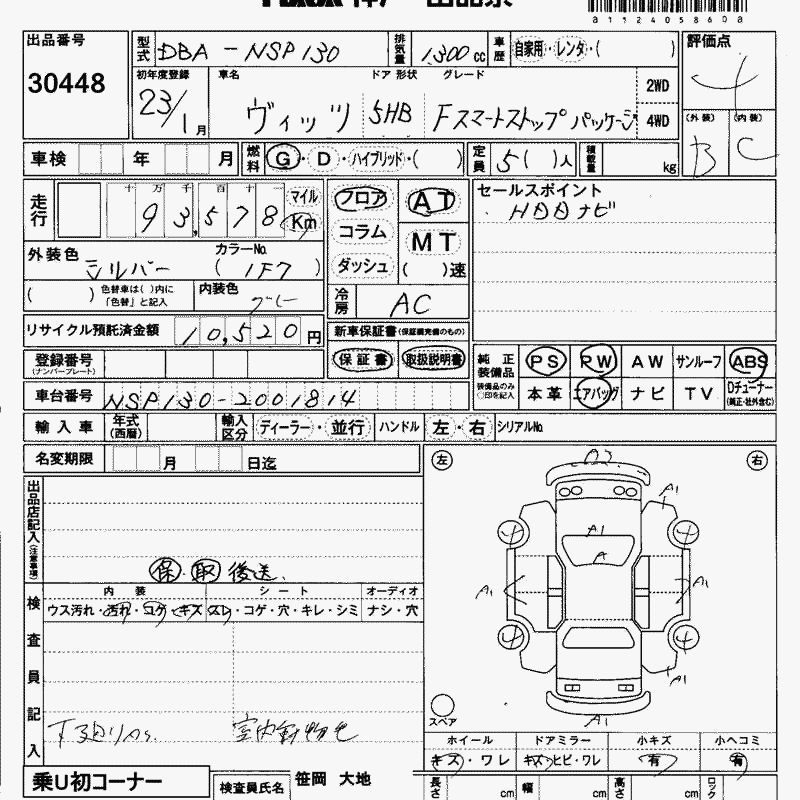 a1124058608
出品番号
30448
型式 DBA-NSP130 排気量 1,300cc 車歴 自家用・レンタ・( )
評価点
4
初年度登録 車名 ドア 形状 グレード
23/1月 ヴィッツ 5HB Fスマートストップパッケージ 2WD 4WD
(外装) (内装)
B C
車検 年 月 燃料 G・D・ハイブリッド・( ) 定員 5( )人 積載量 kg
走行 十 万 千 百 十 一 マイル
93,578 Km
フロア AT
コラム MT
ダッシュ ( )速
セールスポイント
HDDナビ
外装色 カラーNo.
シルバー (1F7)
( ) 色替車は( )内に「色替」と記入 内装色 グレー
冷房 AC
リサイクル預託済金額 10,520円
新車保証書(保証継続完備のもの)
保証書 取扱説明書
登録番号
(ナンバープレート)
純正装備品 PS PW AW サンルーフ ABS
装備品のみ○印を記入 本革 エアバッグ ナビ TV Dチューナー(純正・社外含む)
車台番号 NSP130-2001814
輸入車 年式(西暦) 輸入区分 ディーラー・並行 ハンドル 左・右 シリアルNo.
名変期限 月 日迄
出品店記入(注意事項)
保.取 後送.
左 右
A2
A1
A1
A
A1
A1
A1
A1
スペア
検査員記入
内装 シート オーディオ
ウス汚れ・汚れ・コゲ・キズ スレ・コゲ・穴・キレ・シミ ナシ・穴
ホイール ドアミラー 小キズ 小ヘコミ
キズ・ワレ キズ・ヒビ・ワレ 有 有
乗U初コーナー
検査員氏名 笹岡 大地
長さ cm 幅 cm 高さ cm ロック